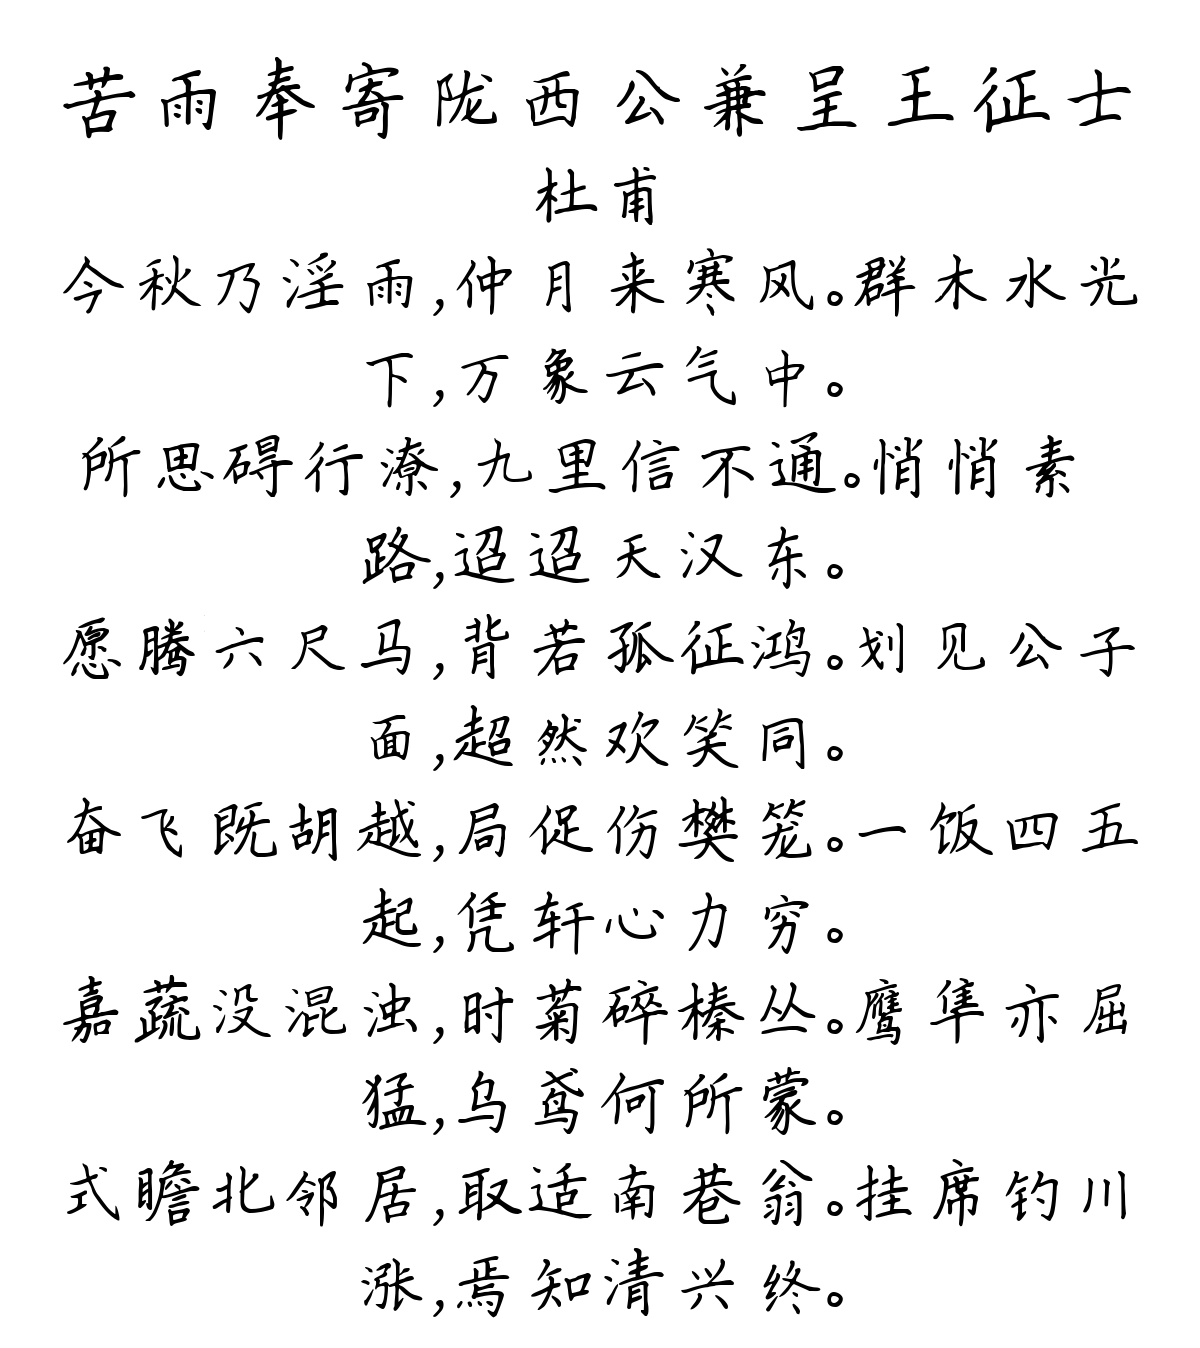 苦雨奉寄陇西公兼呈王征士
杜甫
今秋乃淫雨,仲月来寒风。群木水光
下,万象云气中。
所思碍行潦,九里信不通。悄悄素
路,迢迢天汉东。
愿腾六尺马,背若孤征鸿。划见公子
面,超然欢笑同。
奋飞既胡越,局促伤樊笼。一饭四五
起,凭轩心力穷。
嘉蔬没混浊,时菊碎榛丛。鹰隼亦屈
猛,乌鸢何所蒙。
式瞻北邻居,取适南巷翁。挂席钓川
涨,焉知清兴终。